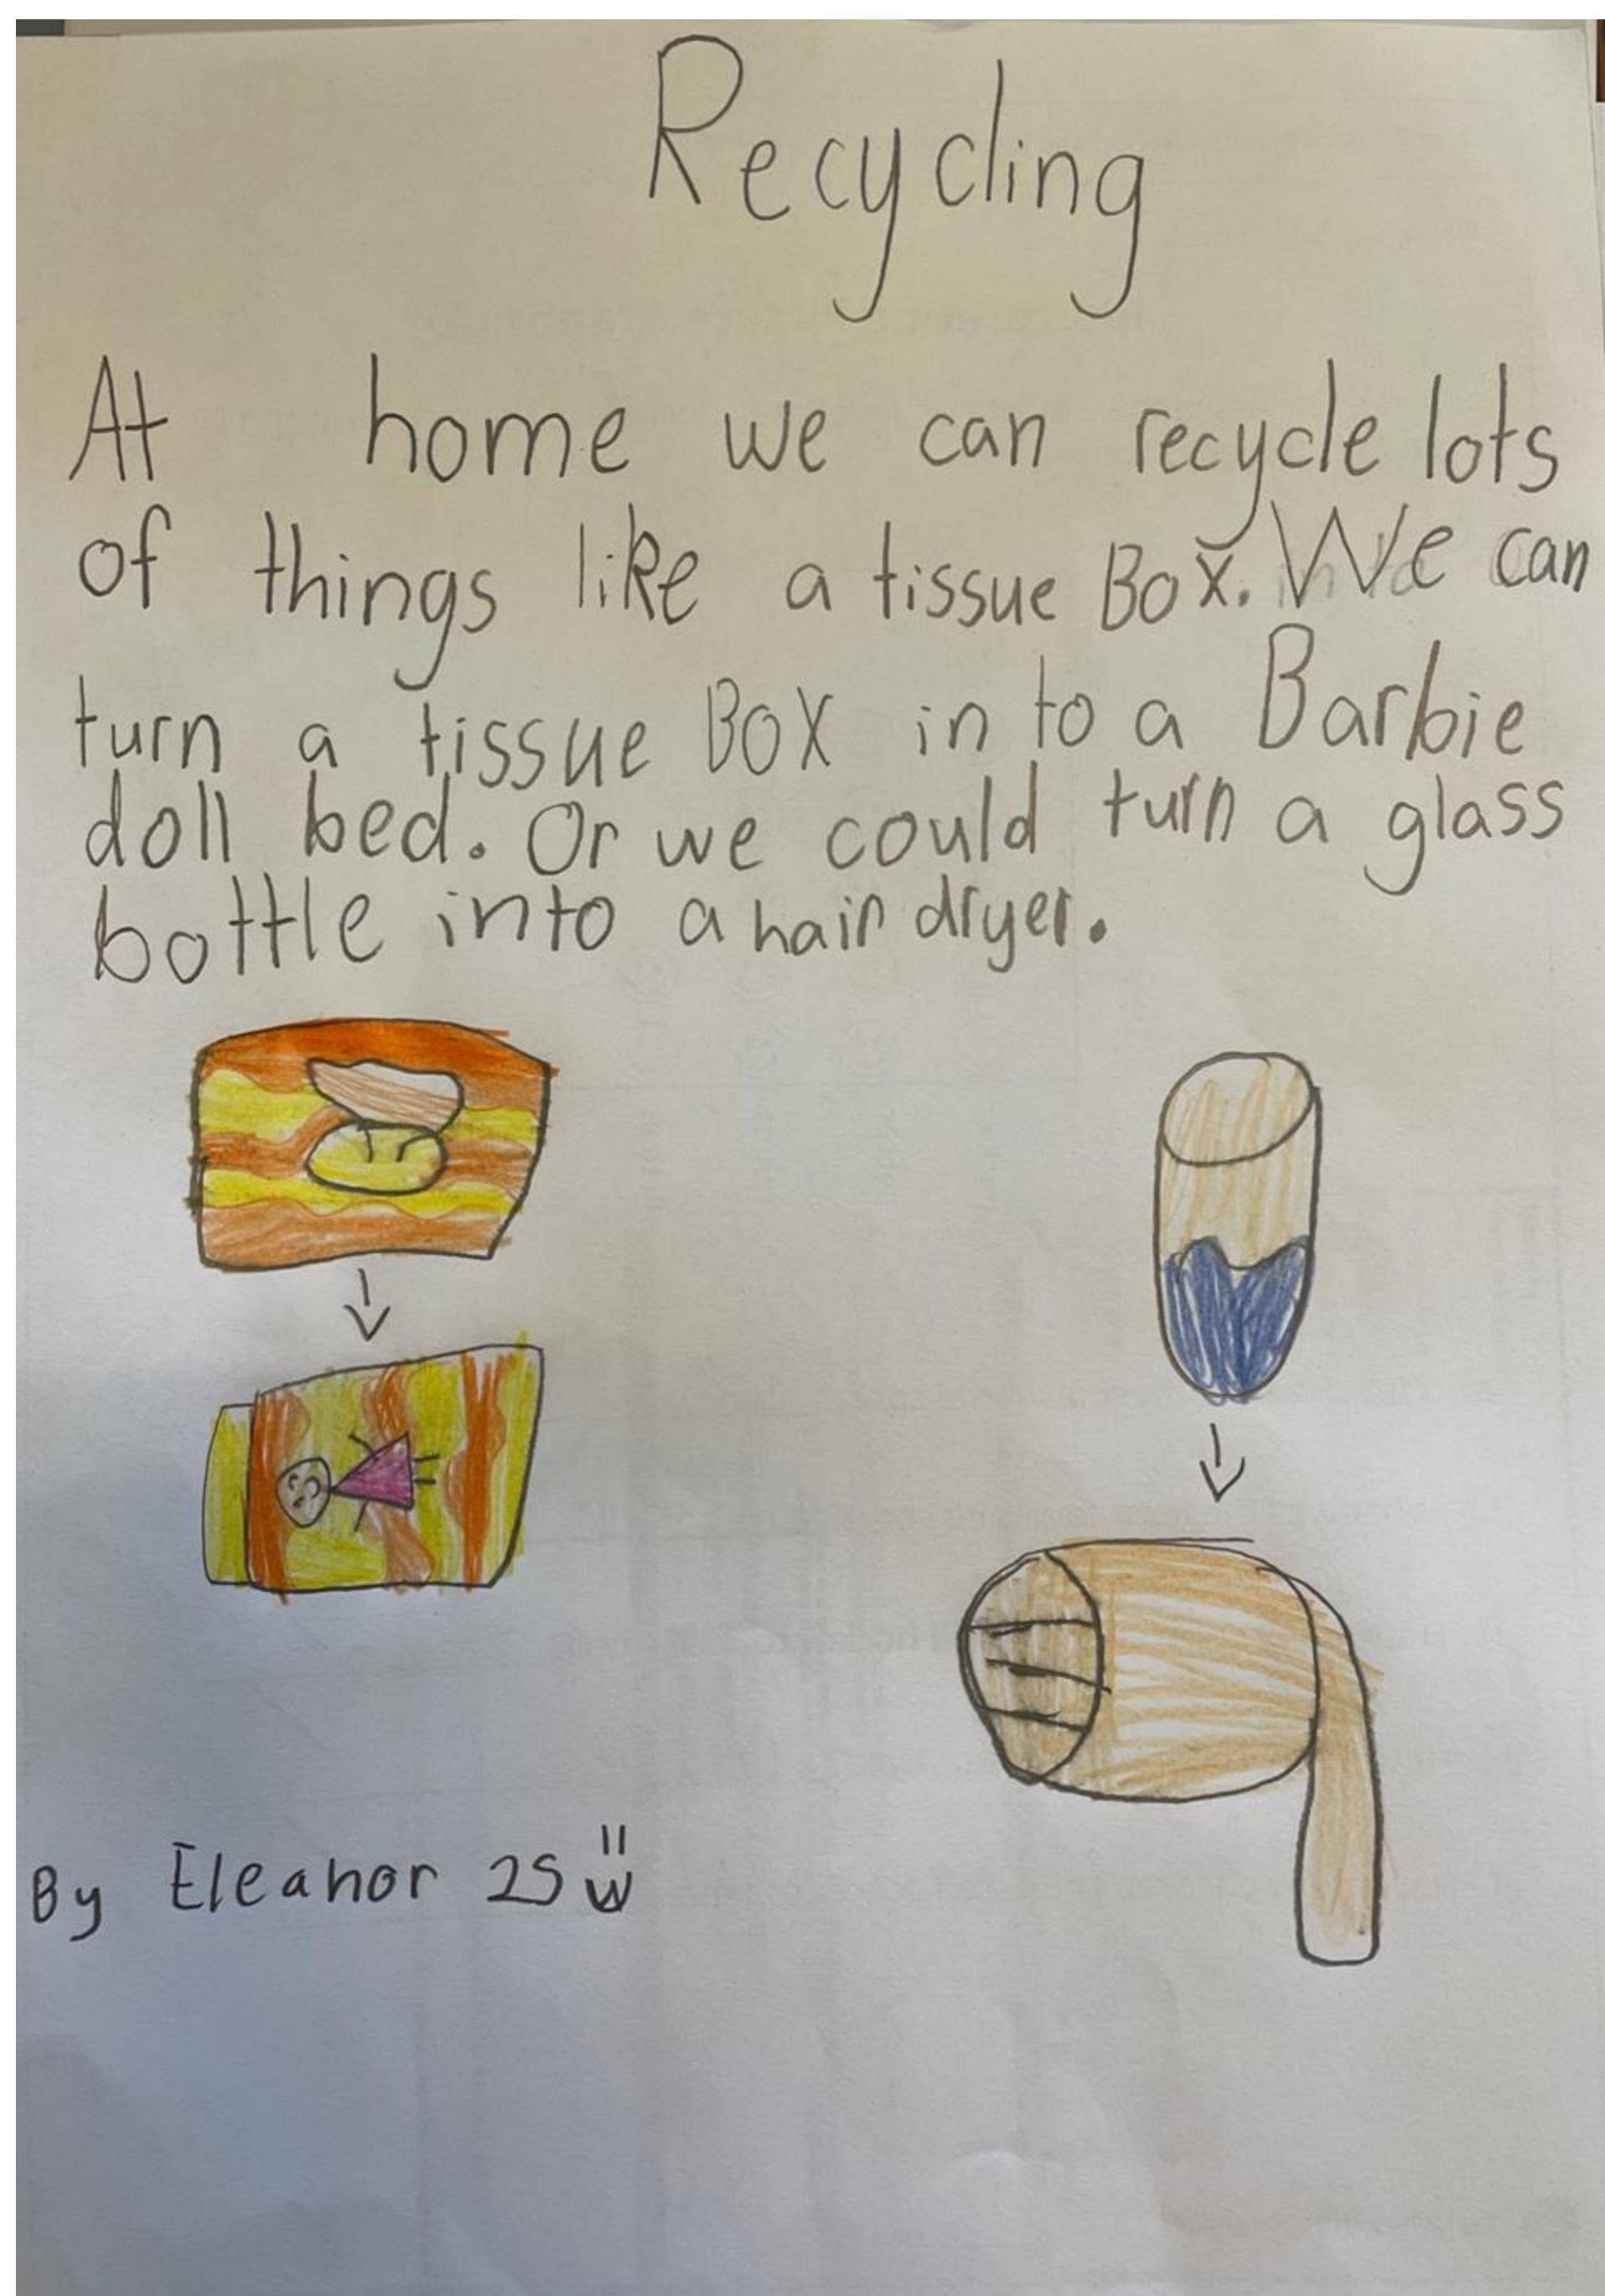 Recycling
At home we can recycle lots
of things like a tissue Box. We can
turn a tissue Box in to a Barbie
doll bed. Or we could turn a glass
bottle into a hair dryer.
By Eleanor 2S